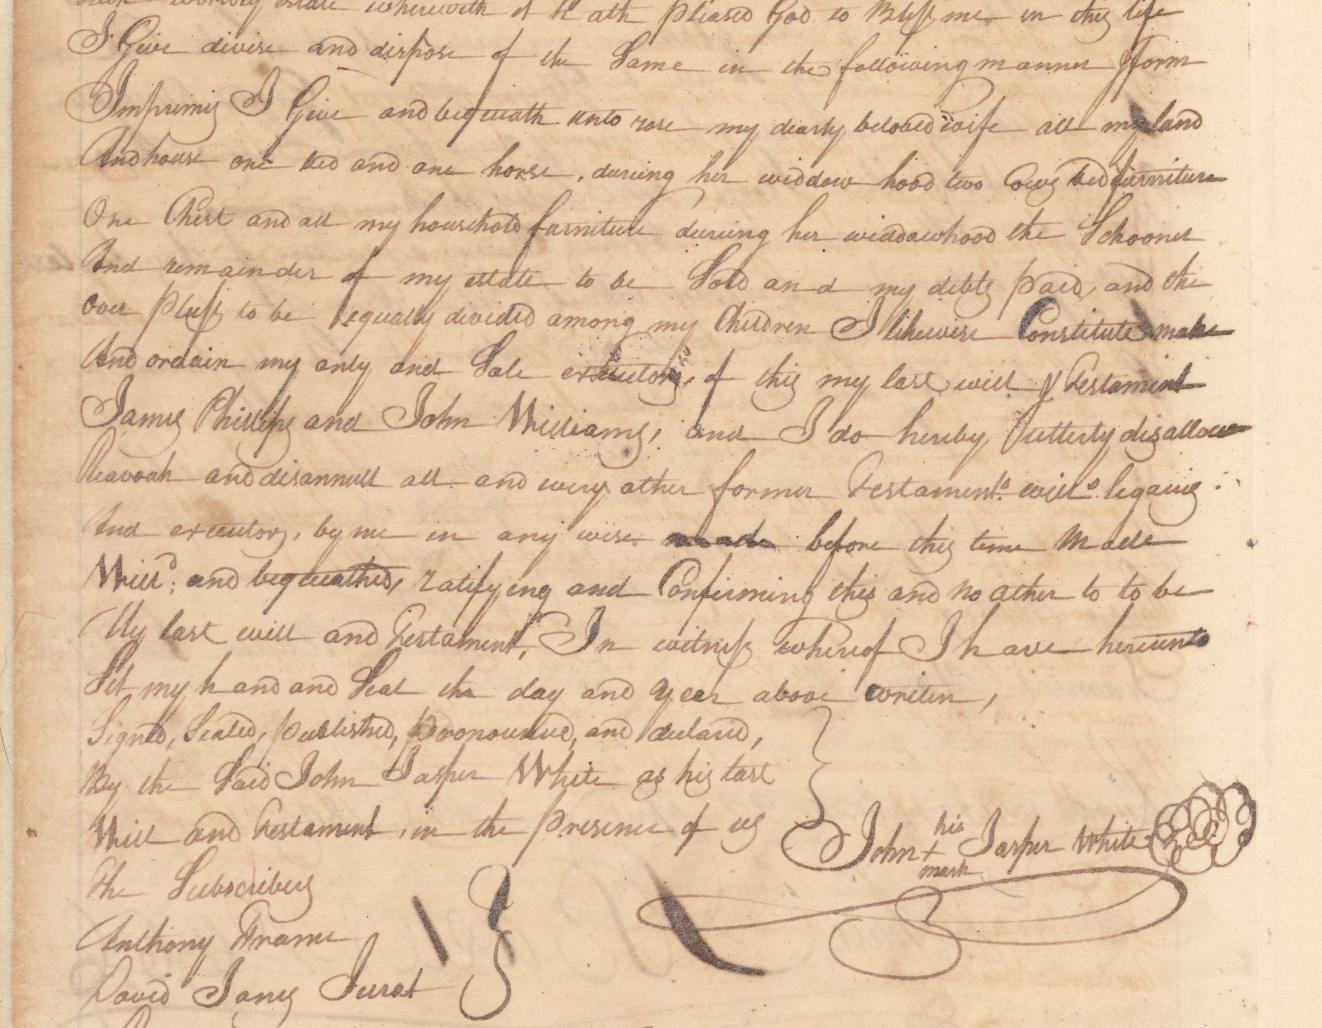 worldly estate wherewith it h ath pleased God to Bless me in this life
I Give divise and dispose of the Same in the following manner & form
Imprimis I Give and bequeath unto rose my dearly beloved wife all my land
And house one bed and one horse, during her widdow hood two Cows bed furniture
One Chest and all my household furniture during her widdowhood the Schooner
And remainder of my estate to be Sold and my debts paid, and the
over pluss to be equally divided among my Children I likewise Constitute make
And ordain my only and Sole executors, of this my last will & Testament
James Phillips and John Williams, and I do hereby utterly disallow
Reavoak and disannull all and every other former Testaments wills legacies
And executors, by me in any wise made before this time Made
Will'd: and bequeathed, ratifying and Confirming this and no other to to be
My last will and Testament, In witness whereof I have hereunto
Set my hand and Seal the day and year above writen,
Signed, Sealed, published, pronounced, and declared,
By the Said John Jasper White as his last
Will and Testament, in the Presence of us
John his + mark Jasper White
The Subscribers
Anthony Frame
David Jones Jurat